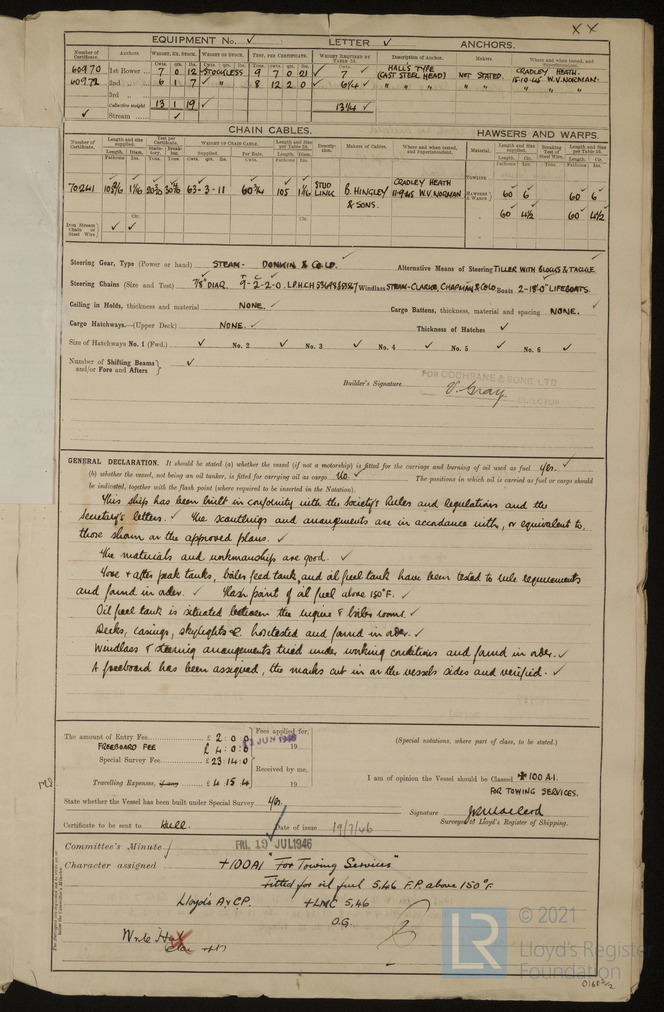 XX
EQUIPMENT No. ✓ LETTER ✓ ANCHORS.
Number of Certificate. Anchors. WEIGHT, EX. STOCK. WEIGHT OF STOCK. TEST, PER CERTIFICATE. WEIGHT REQUIRED BY TABLE 53. Description of Anchor. Makers. Where and when tested, and Superintendent.
Cwts. qrs. lbs. Cwts. qrs. lbs. Tons. cwts. qrs. lbs. Cwts.
60970 1st Bower 7 0 12 STOCKLESS 9 7 0 21 ✓ 7 HALL'S TYPE (CAST STEEL HEAD) NOT STATED. CRADLEY HEATH.
60972 2nd " 6 1 7 ✓ " 8 12 2 0 ✓ 6¼ ✓ " " " " " 15-10-45 W.V. NORMAN.
3rd " " " "
Collective weight 13 1 19 ✓ 13¼ ✓
✓ Stream ✓
CHAIN CABLES. HAWSERS AND WARPS.
Number of Certificate. Length and size supplied. Test per Certificate. WEIGHT OF CHAIN CABLE. Length and size per Table 53. Description. Makers of Cables. Where and when tested, and Superintendent. Material. Length and size supplied. Breaking Test of Steel Wire. Length and size per Table 53.
Length. Diam. Statutory. Breaking. Supplied. Per Rule. Length. Diam. Length. Cir. Length. Cir.
Fathoms Ins. Tons. Tons. Cwts. qrs. lbs. Cwts. Fathoms Ins. Fathoms Ins. Tons. Fathoms Ins.
TOWLINE
70241 63-3-11 60¾ 105 1 1/16 STUD LINK B. HINGLEY & SONS. CRADLEY HEATH W.V. NORMAN HAWSERS & WARPS 60 6 60 6
" 60 4½ 60 4½
Iron Stream Chain or Steel Wire ✓ ✓ Cir. Cir.
Steering Gear, Type (Power or hand) STEAM - DONKIN & CO LD. Alternative Means of Steering TILLER WITH BLOCKS & TACKLE.
Steering Chains (Size and Test) 7/8" DIAR. 9-2-2-0 Windlass STEAM-CLARKE, CHAPMAN & CO LD Boats 2-18'-0" LIFEBOATS.
Ceiling in Holds, thickness and material NONE. ✓ Cargo Battens, thickness, material and spacing NONE. ✓
Cargo Hatchways.—(Upper Deck) NONE. ✓ Thickness of Hatches ✓
Size of Hatchways No. 1 (Fwd.) ✓ No. 2 ✓ No. 3 ✓ No. 4 ✓ No. 5 ✓ No. 6 ✓
Number of Shifting Beams and/or Fore and Afters } ✓
Builder's Signature FOR COCHRANE & SONS, LTD
V. Gray
DIRECTOR
GENERAL DECLARATION. It should be stated (a) whether the vessel (if not a motorship) is fitted for the carriage and burning of oil used as fuel yes. ✓
(b) whether the vessel, not being an oil tanker, is fitted for carrying oil as cargo No. ✓ The positions in which oil is carried as fuel or cargo should
be indicated, together with the flash point (where required to be inserted in the Notation).
This ship has been built in conformity with the Society's Rules and regulations and the
Secretary's letters. ✓ The scantlings and arrangements are in accordance with, or equivalent to,
those shown on the approved plans. ✓
The materials and workmanship are good. ✓
Fore & after peak tanks, boiler feed tank, and oil fuel tank have been tested to rule requirements
and found in order. ✓ Flash point of oil fuel above 150°F. ✓
Oil fuel tank is situated between the engine & boiler rooms. ✓
Decks, casings, skylights &c. hosetested and found in order. ✓
Windlass & steering arrangements tried under working conditions and found in order. ✓
A freeboard has been assigned, the marks cut in on the vessels sides and verified. ✓
The amount of Entry Fee £ 2 : 0 : 0 Fees applied for,
FREEBOARD FEE £ 4 : 0 : 0 JUN 1946 19
Special Survey Fee £ 23 : 14 : 0 Received by me,
Travelling Expenses, if any £ 4 15 4 19
(Special notations, where part of class, to be stated.)
I am of opinion the Vessel should be Classed ✠ 100 A.1.
FOR TOWING SERVICES.
State whether the Vessel has been built under Special Survey yes.
Signature
Surveyor to Lloyd's Register of Shipping.
Certificate to be sent to Hull. Date of issue 19/7/46
Committee's Minute FRI. 19 JUL 1946
Character assigned +100A1 "For Towing Services"
Fitted for oil fuel 5,46 F.P. above 150°F.
Lloyd's A&CP. +LMC 5,46
O.G.
Write Hull
LR © 2021
Lloyd's Register
Foundation